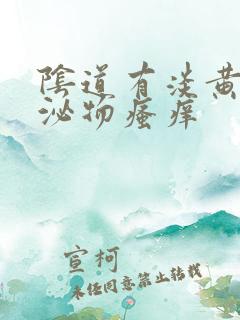 陰道有淡黃
泌物瘙痒
宣柯
未经同意禁止转载